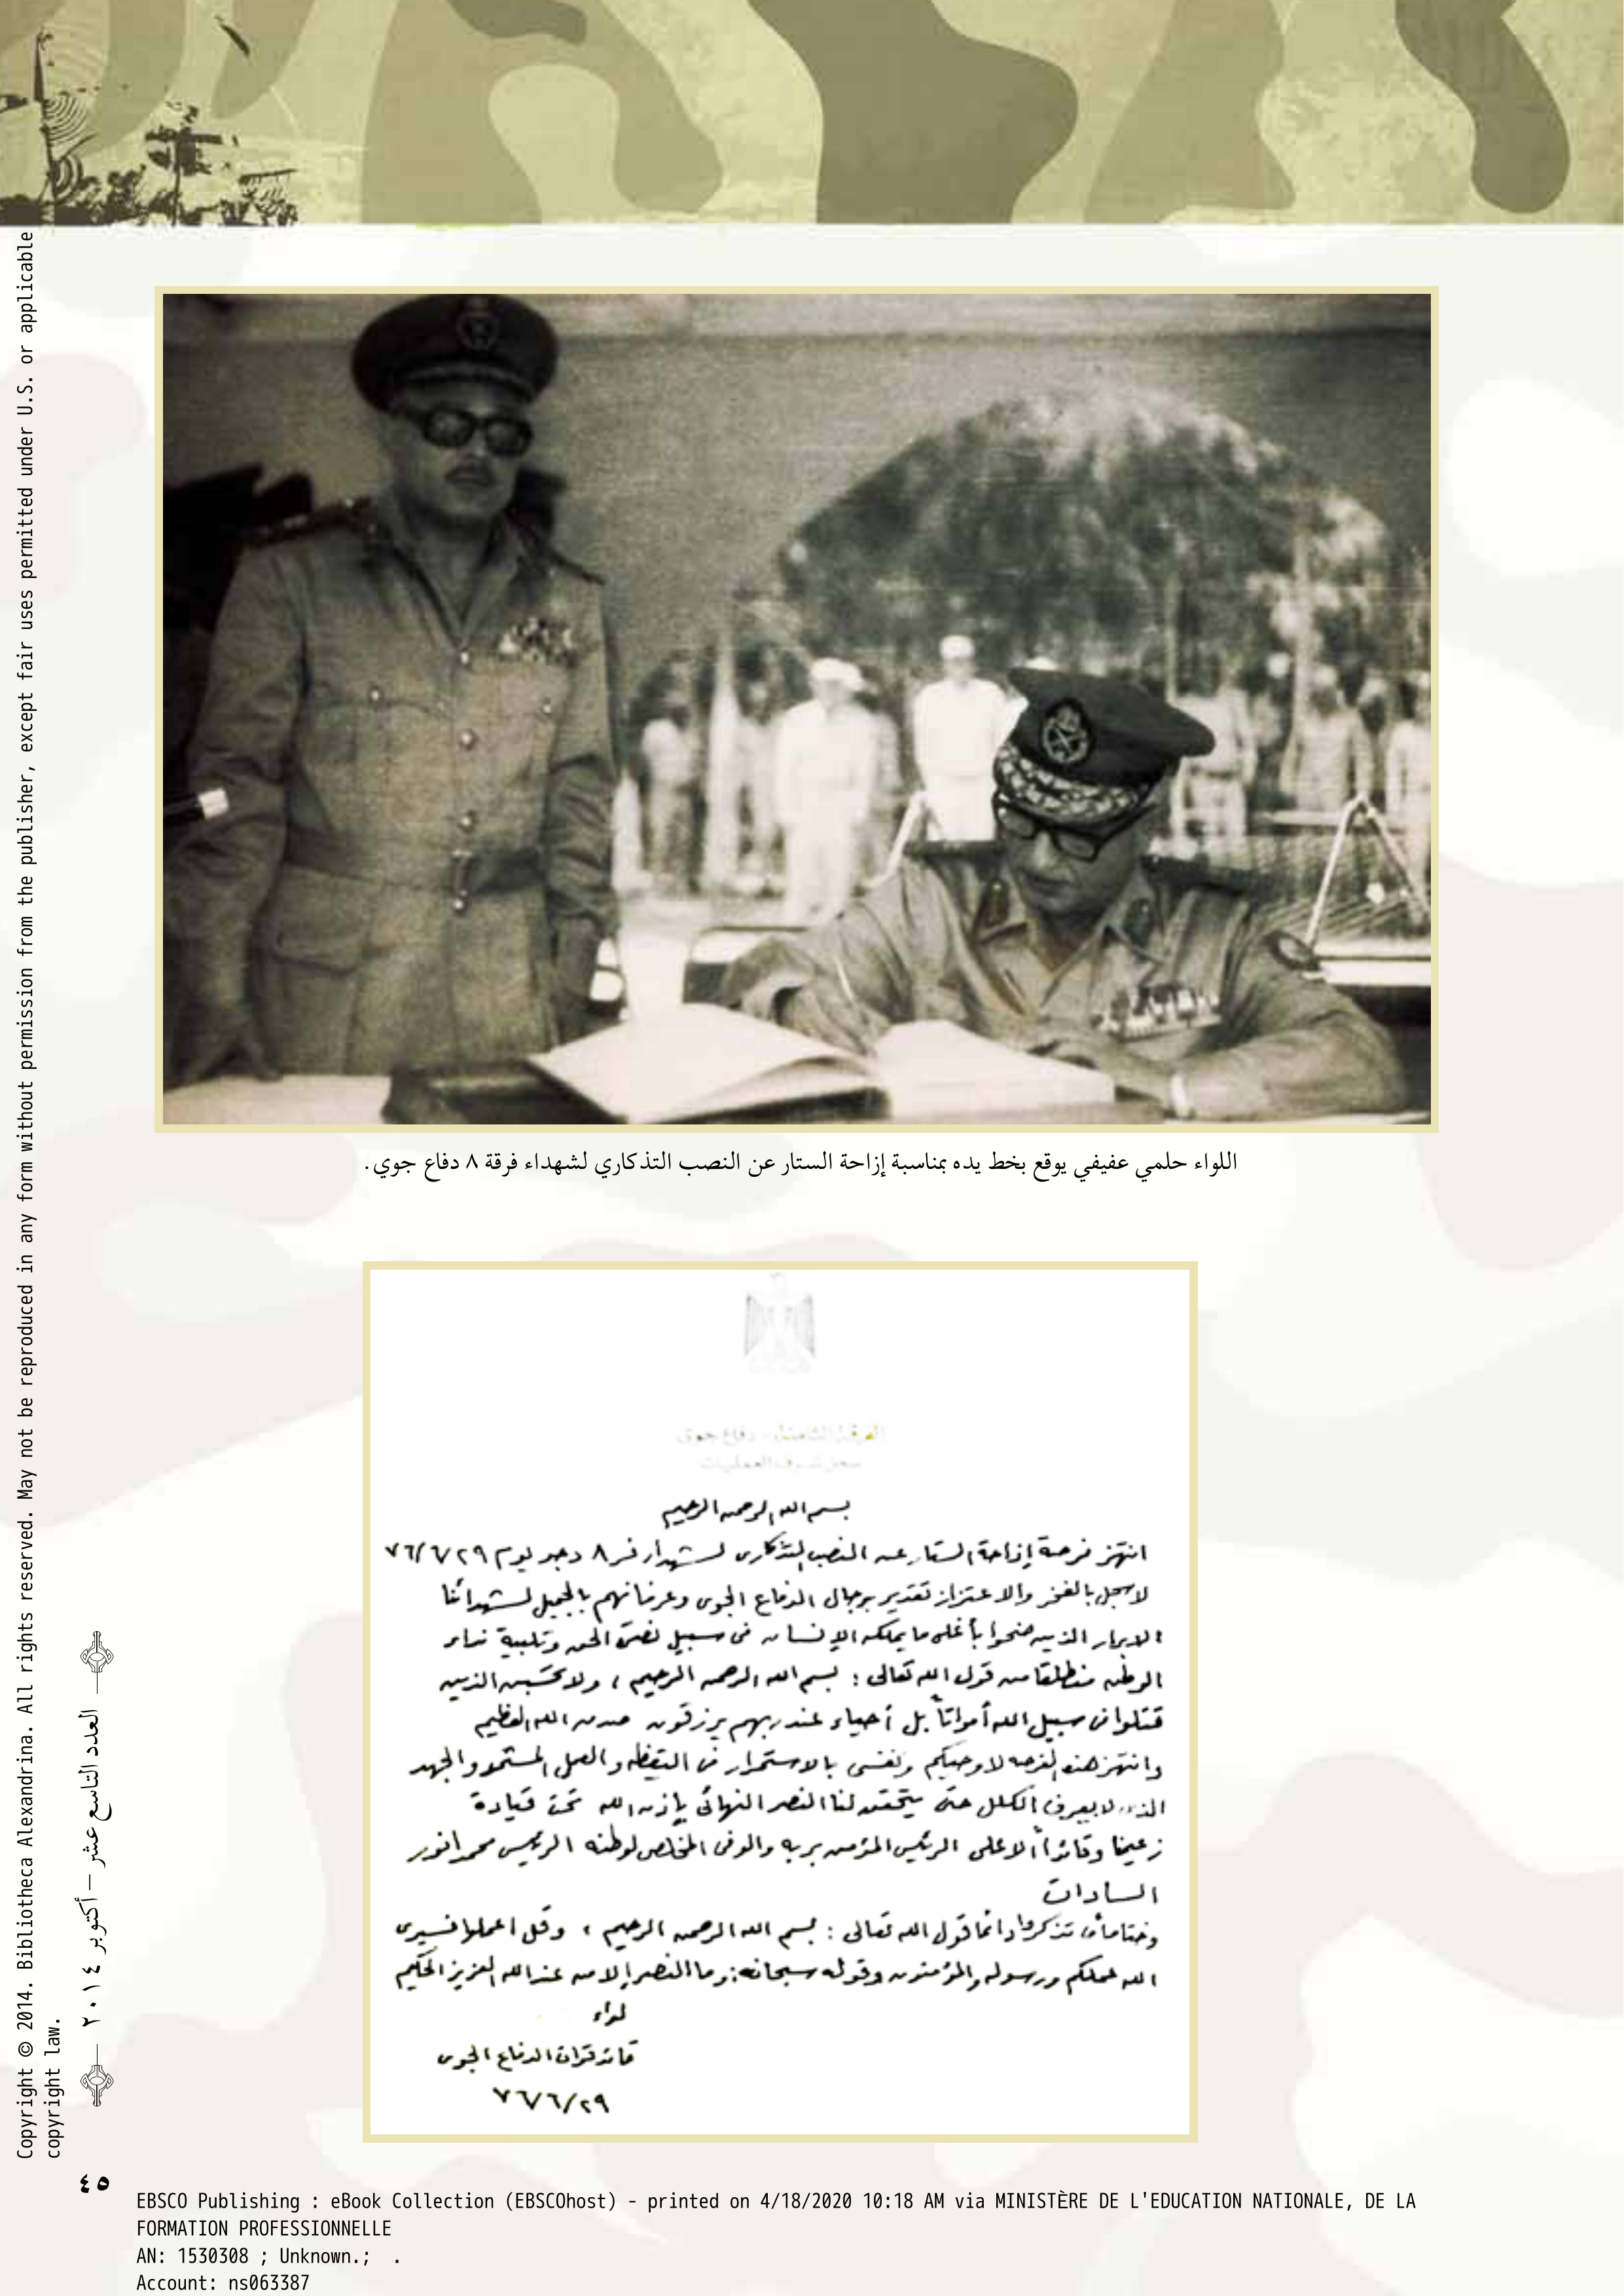 اللواء حلمي عفيفي يوقع بخط يده بمناسبة إزاحة الستار عن النصب التذكاري لشهداء فرقة ٨ دفاع جوي.
الفرقة الثامنة - دفاع جوى
سجل شرف العمليات
بسم الله الرحمن الرحيم
انتهز فرصة إزاحة الستار عن النصب التذكارى لشهداء فر ٨ دجو يوم ٧٦/٦/٢٩
لاسجل بالفخر والاعتزاز تقدير رجال الدفاع الجوى وعرفانهم بالجميل لشهدائنا
الابرار الذين ضحوا بأغلى ما يملكه الإنسان فى سبيل نصرة الحق وتلبية نداء
الوطن منطلقا من قول الله تعالى : بسم الله الرحمن الرحيم ، ولا تحسبن الذين
قتلوا فى سبيل الله أمواتاً بل أحياء عند ربهم يرزقون صدق الله العظيم
وانتهز هذه الفرصه لاوصيكم ونفسى بالاستمرار فى اليقظه والعمل المستمر والجهد
الذى لا يعرف الكلل حتى يتحقق لنا النصر النهائى بإذن الله تحت قيادة
زعيمنا وقائدنا الاعلى الرئيس المؤمن بربه والوفى المخلص لوطنه الرئيس محمد انور
السادات
وختاما تذكروا دائما قول الله تعالى : بسم الله الرحمن الرحيم ، وقل اعملوا فسيرى
الله عملكم ورسوله والمؤمنون وقوله سبحانه : وما النصر إلا من عند الله العزيز الحكيم
لواء
قائد قوات الدفاع الجوى
٧٦/٦/٢٩
العدد التاسع عشر – أكتوبر ٢٠١٤
٤٥
Copyright © 2014. Bibliotheca Alexandrina. All rights reserved. May not be reproduced in any form without permission from the publisher, except fair uses permitted under U.S. or applicable
copyright law.
EBSCO Publishing : eBook Collection (EBSCOhost) - printed on 4/18/2020 10:18 AM via MINISTÈRE DE L'EDUCATION NATIONALE, DE LA
FORMATION PROFESSIONNELLE
AN: 1530308 ; Unknown.; .
Account: ns063387